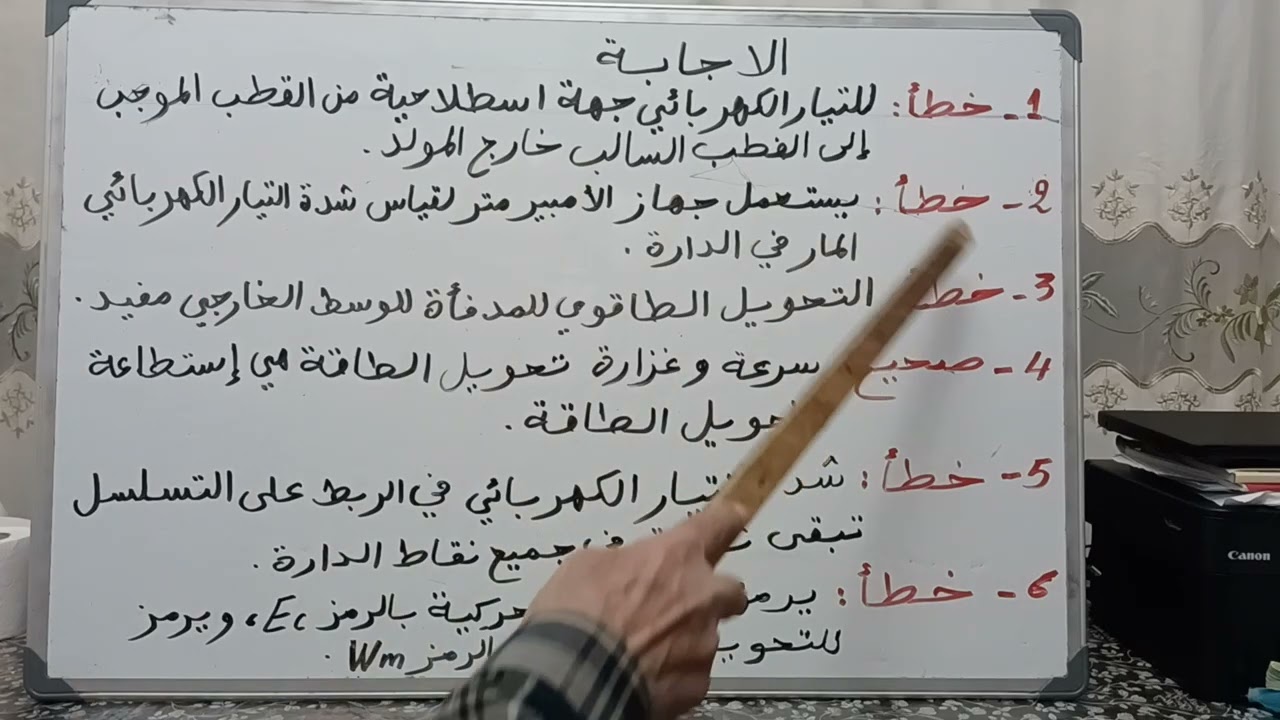 الاجابة
1- خطأ: للتيار الكهربائي جهة اسطلاحية من القطب الموجب
إلى القطب السالب خارج المولد.
2- خطأ: يستعمل جهاز الأمبير متر لقياس شدة التيار الكهربائي
المار في الدارة.
3- خطأ التحويل الطاقوي للمدفأة للوسط الخارجي مفيد.
4- صحيح سرعة وغزارة تحويل الطاقة هي إستطاعة
تحويل الطاقة.
5- خطأ: التيار الكهربائي في الربط على التسلسل
تبقى في جميع نقاط الدارة.
6- خطأ: يرمز بالرمز Ec، ويرمز
بالرمز Wm.
Canon